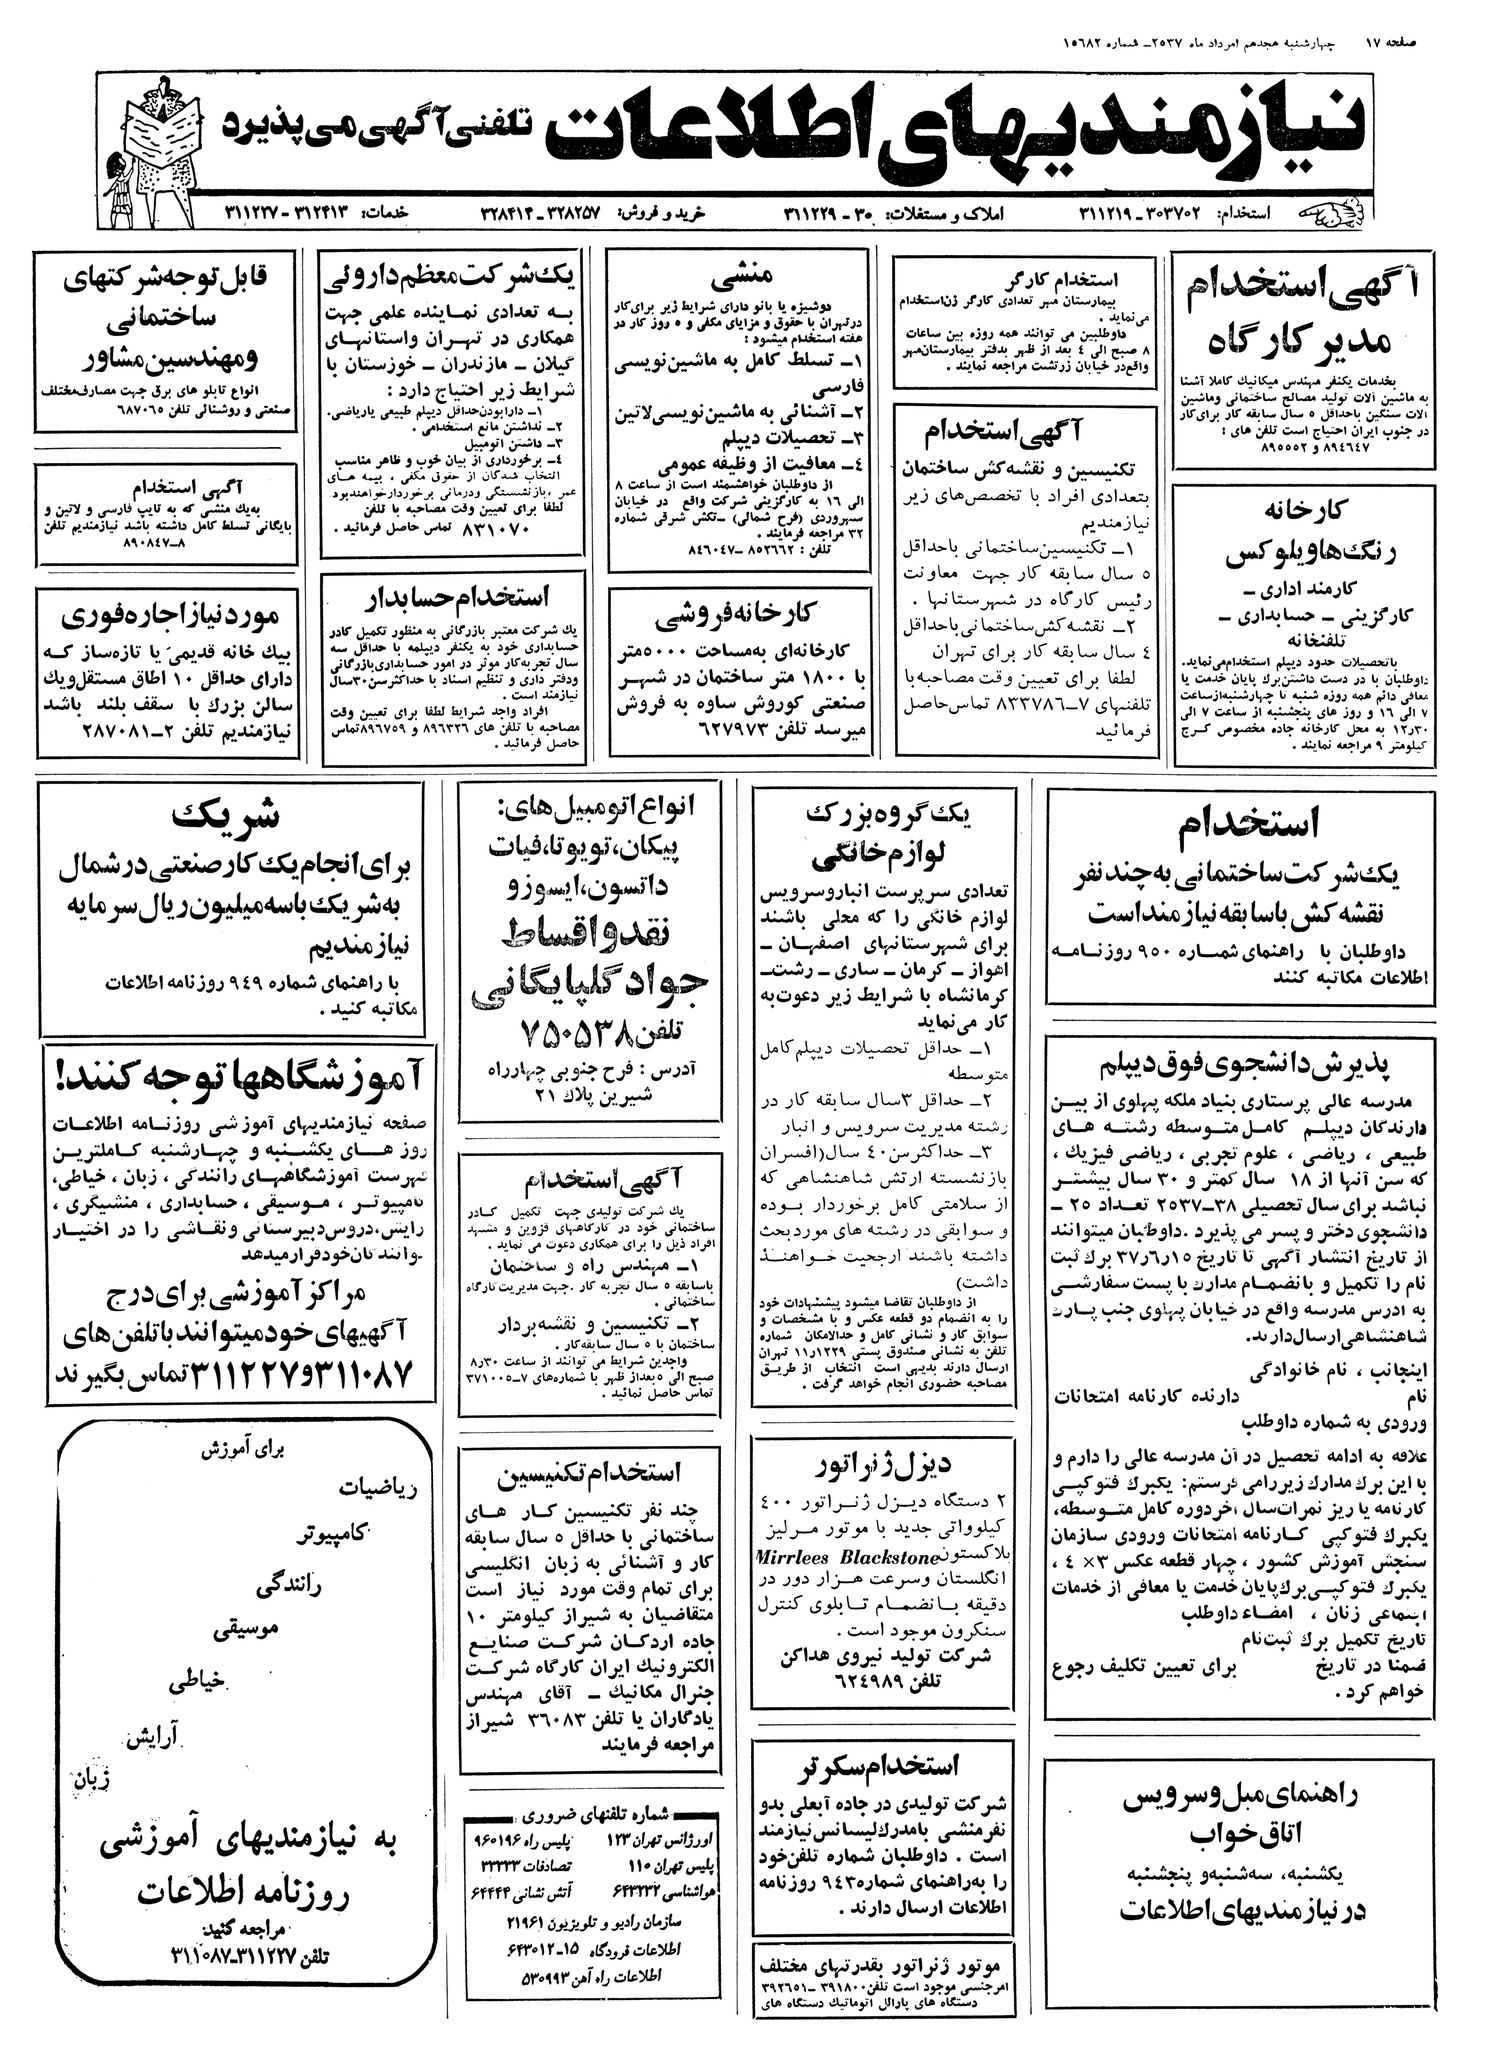 صفحه ۱۷ چهارشنبه هجدهم امرداد ماه ۲۵۳۷ـ شماره ۱۵۶۸۲
نیازمندیهای اطلاعات تلفنی آگهی می‌پذیرد
استخدام: ۳۰۳۷۰۲ ـ ۳۱۱۲۱۹ املاک و مستغلات: ۳۰ ـ ۳۱۱۲۲۹ خرید و فروش: ۳۲۸۲۵۷ـ ۳۲۸۴۱۴ خدمات: ۳۱۲۴۱۳ ـ ۳۱۱۲۳۷
آگهی استخدام
مدیر کارگاه
بخدمات یکنفر مهندس میکانیک کاملا آشنا
به ماشین آلات تولید مصالح ساختمانی وماشین
آلات سنگین باحداقل ۵ سال سابقه کار برای‌کار
در جنوب ایران احتیاج است تلفن های :
۸۹۴۶۴۷ و ۸۹۵۵۵۲
کارخانه
رنگ‌هاویلوکس
کارمند اداری ـ
کارگزینی ـ حسابداری ـ
تلفنخانه
باتحصیلات حدود دیپلم استخدام‌می‌نماید.
داوطلبان با در دست داشتن‌برك پایان خدمت یا
معافی دائم همه روزه شنبه تا چهارشنبه‌ازساعت
۷ الی ۱۶ و روز های پنجشنبه از ساعت ۷ الی
۱۲ر۳۰ به محل کارخانه جاده مخصوص کرج
کیلومتر ۹ مراجعه نمایند .
استخدام کارگر
بیمارستان مهر تعدادی کارگر زن‌استخدام
می‌نماید .
داوطلبین می توانند همه روزه بین ساعات
۸ صبح الی ۴ بعد از ظهر بدفتر بیمارستان‌مهر
واقع‌در خیابان زرتشت مراجعه نمایند .
آگهی استخدام
تکنیسین و نقشه‌کش ساختمان
بتعدادی افراد با تخصص‌های زیر
نیازمندیم
۱ـ تکنیسین‌ساختمانی باحداقل
۵ سال سابقه کار جهت معاونت
رئیس کارگاه در شهرستانها .
۲ـ نقشه‌کش‌ساختمانی‌باحداقل
۴ سال سابقه کار برای تهران
لطفا برای تعیین وقت مصاحبه‌با
تلفنهای ۷ـ۸۳۳۷۸۶ تماس‌حاصل
فرمائید
منشی
دوشیزه یا بانو دارای شرایط زیر برای‌کار
درتهران با حقوق و مزایای مکفی و ۵ روز کار در
هفته استخدام میشود :
۱ـ تسلط کامل به ماشین‌نویسی
فارسی
۲ـ آشنائی به ماشین‌نویسی‌لاتین
۳ـ تحصیلات دیپلم
۴ـ معافیت از وظیفه عمومی
از داوطلبان خواهشمند است از ساعت ۸
الی ۱۶ به کارگزینی شرکت واقع در خیابان
سهروردی (فرح شمالی) ـتکش شرقی شماره
۳۲ مراجعه فرمایند .
تلفن : ۸۵۲۶۶۲ ـ۸۴۶۰۴۷
کارخانه‌فروشی
کارخانه‌ای به‌مساحت ۵۰۰۰متر
با ۱۸۰۰ متر ساختمان در شهر
صنعتی کوروش ساوه به فروش
میرسد تلفن ۶۲۷۹۷۳
یک‌شرکت‌معظم‌داروئی
به تعدادی نماینده علمی جهت
همکاری در تهران واستانهای
گیلان ـ مازندران ـ خوزستان با
شرایط زیر احتیاج دارد :
۱ـ دارابودن‌حداقل دیپلم طبیعی یاریاضی.
۲ـ نداشتن مانع استخدامی .
۳ـ داشتن اتومبیل
۴ـ برخورداری از بیان خوب و ظاهر مناسب
انتخاب شدگان از حقوق مکفی ، بیمه های
عمر ،بازنشستگی ودرمانی برخوردارخواهندبود.
لطفا برای تعیین وقت مصاحبه با تلفن
۸۳۱۰۷۰ تماس حاصل فرمائید .
استخدام‌حسابدار
یك شرکت معتبر بازرگانی به منظور تکمیل کادر
حسابداری خود به یکنفر دیپلمه با حداقل سه
سال تجربه‌کار موثر در امور حسابداری‌بازرگانی
ودفتر داری و تنظیم اسناد با حداکثرسن۳۰سال
نیازمند است .
افراد واجد شرایط لطفا برای تعیین وقت
مصاحبه با تلفن های ۸۹۶۳۳۶ و ۸۹۶۷۵۹تماس
حاصل فرمائید .
قابل‌توجه‌شرکتهای
ساختمانی
ومهندسین‌مشاور
انواع تابلو های برق جهت مصارف‌مختلف
صنعتی و روشنائی تلفن ۶۸۷۰۶۵
آگهی استخدام
به‌یك منشی که به تایپ فارسی و لاتین و
بایگانی تسلط کامل داشته باشد نیازمندیم تلفن
۸ـ۸۹۰۸۴۷
موردنیازاجاره‌فوری
بیك خانه قدیمی یا تازه‌ساز که
دارای حداقل ۱۰ اطاق مستقل‌ویك
سالن بزرك با سقف بلند باشد
نیازمندیم تلفن ۲ـ۲۸۷۰۸۱
استخدام
یک‌شرکت‌ساختمانی‌به‌چندنفر
نقشه‌کش‌باسابقه‌نیازمنداست
داوطلبان با راهنمای شماره ۹۵۰ روزنامه
اطلاعات مکاتبه کنند
پذیرش‌دانشجوی‌فوق‌دیپلم
مدرسه عالی پرستاری بنیاد ملکه پهلوی از بین
دارندگان دیپلم کامل‌متوسطه رشته های
طبیعی ، ریاضی ، علوم تجربی ، ریاضی فیزیك ،
که سن آنها از ۱۸ سال کمتر و ۳۰ سال بیشتر
نباشد برای سال تحصیلی ۳۸ـ۲۵۳۷ تعداد ۲۵ ـ
دانشجوی دختر و پسر می پذیرد .داوطلبان میتوانند
از تاریخ انتشار آگهی تا تاریخ ۳۷ر۶ر۱۵ برك ثبت
نام را تکمیل و بانضمام مدارك با پست سفارشی
به آدرس مدرسه واقع در خیابان پهلوی جنب پارك
شاهنشاهی‌ارسال‌دارند.
اینجانب ، نام خانوادگی
نام دارنده کارنامه امتحانات
ورودی به شماره داوطلب
علاقه به ادامه تحصیل در آن مدرسه عالی را دارم و
با این برك مدارك زیررامی فرستم: یکبرك فتوکپی
کارنامه یا ریز نمرات‌سال آخردوره کامل متوسطه،
یکبرك فتوکپی کارنامه امتحانات ورودی سازمان
سنجش آموزش کشور ، چهار قطعه عکس ۳×۴ ،
یکبرك فتوکپی‌برك‌پایان خدمت یا معافی از خدمات
اجتماعی زنان ، امضاء داوطلب
تاریخ تکمیل برك ثبت‌نام
ضمنا در تاریخ برای تعیین تکلیف رجوع
خواهم کرد .
راهنمای مبل و سرویس
اتاق‌خواب
یکشنبه، سه‌شنبه‌و پنجشنبه
درنیازمندیهای‌اطلاعات
یک‌گروه‌بزرک
لوازم‌خانگی
تعدادی سرپرست انباروسرویس
لوازم خانگی را که محلی باشند
برای شهرستانهای اصفهان ـ
اهواز ـ کرمان ـ ساری ـ رشت‌ـ
کرمانشاه با شرایط زیر دعوت‌به
کار می‌نماید
۱ـ حداقل تحصیلات دیپلم‌کامل
متوسطه
۲ـ حداقل ۳سال سابقه کار در
رشته مدیریت سرویس و انبار
۳ـ حداکثرسن۴۰ سال(افسران
بازنشسته ارتش شاهنشاهی که
از سلامتی کامل برخوردار بوده
و سوابقی در رشته های موردبحث
داشته باشند ارجحیت خواهند
داشت)
از داوطلبان تقاضا میشود پیشنهادات خود
را به انضمام دو قطعه عکس و با مشخصات و
سوابق کار و نشانی کامل و حدالامکان شماره
تلفن به نشانی صندوق پستی ۱۱ر۱۲۲۹ تهران
ارسال دارند بدیهی است انتخاب از طریق
مصاحبه حضوری انجام خواهد گرفت .
دیزل‌ژنراتور
۲ دستگاه دیزل ژنراتور ۴۰۰
کیلوواتی جدید با موتور مرلیز
بلاکستون Mirrlees Blackstone
انگلستان وسرعت هزار دور در
دقیقه بانضمام تابلوی کنترل
سنکرون موجود است .
شرکت تولید نیروی هداکن
تلفن ۶۲۴۹۸۹
استخدام‌سکرتر
شرکت تولیدی در جاده آبعلی بدو
نفرمنشی بامدرك‌لیسانس‌نیازمند
است . داوطلبان شماره تلفن‌خود
را به‌راهنمای شماره۹۴۳ روزنامه
اطلاعات ارسال دارند .
موتور ژنراتور بقدرتهای مختلف
امرجنسی موجود است تلفن۳۹۱۸۰۰ ـ۳۹۲۶۵۱
دستگاه های پارالل اتوماتیك دستگاه های
انواع‌اتومبیل‌های:
پیکان،تویوتا،فیات
داتسون،ایسوزو
نقدواقساط
جواد گلپایگانی
تلفن ۷۵۰۵۳۸
آدرس : فرح جنوبی چهارراه
شیرین پلاك ۲۱
آگهی استخدام
یك شرکت تولیدی جهت تکمیل کادر
ساختمانی خود در کارگاههای قزوین و مشهد
افراد ذیل را برای همکاری دعوت می نماید .
۱ـ مهندس راه و ساختمان
باسابقه ۵ سال تجربه کار .جهت مدیریت‌کارگاه
ساختمانی .
۲ـ تکنیسین و نقشه‌بردار
ساختمان با ۵ سال سابقه‌کار.
واجدین شرایط می توانند از ساعت ۸ر۳۰
صبح الی ۵بعداز ظهر با شماره‌های ۷ـ۳۷۱۰۰۵
تماس حاصل نمائید .
استخدام‌تکنیسین
چند نفر تکنیسین کار های
ساختمانی با حداقل ۵ سال سابقه
کار و آشنائی به زبان انگلیسی
برای تمام وقت مورد نیاز است
متقاضیان به شیراز کیلومتر ۱۰
جاده اردکان شرکت صنایع
الکترونیك ایران کارگاه شرکت
جنرال مکانیك ـ آقای مهندس
یادگاران یا تلفن ۳۶۰۸۳ شیراز
مراجعه فرمایند
شماره تلفنهای ضروری
اورژانس تهران ۱۲۳ پلیس راه ۹۶۰۱۹۶
پلیس تهران ۱۱۰ تصادفات ۲۲۲۲۲
هواشناسی ۶۴۳۲۳۲ آتش نشانی ۶۴۴۴۴
سازمان رادیو و تلویزیون ۲۱۹۶۱
اطلاعات فرودگاه ۱۵ـ۶۴۳۰۱۲
اطلاعات راه آهن ۵۳۰۹۹۳
شریک
برای‌انجام‌یک‌کارصنعتی‌درشمال
به‌شریک‌باسه‌میلیون‌ریال‌سرمایه
نیازمندیم
با راهنمای شماره ۹۴۹ روزنامه اطلاعات
مکاتبه کنید .
آموزشگاهها توجه کنند!
صفحه نیازمندیهای آموزشی روزنامه اطلاعات
روز های یکشنبه و چهارشنبه کاملترین
فهرست آموزشگاههای رانندگی ، زبان ، خیاطی،
کامپیوتر ، موسیقی ، حسابداری ، منشیگری ،
آرایش،دروس‌دبیرستانی ونقاشی را در اختیار
خوانندگان‌خودقرارمیدهد
مراکزآموزشی‌برای‌درج
آگهیهای‌خودمیتوانندباتلفن‌های
۳۱۱۰۸۷و۳۱۱۲۲۷تماس‌بگیرند
برای آموزش
ریاضیات
کامپیوتر
رانندگی
موسیقی
خیاطی
آرایش
زبان
به نیازمندیهای آموزشی
روزنامه اطلاعات
مراجعه کنید
تلفن ۳۱۱۲۲۷ـ۳۱۱۰۸۷